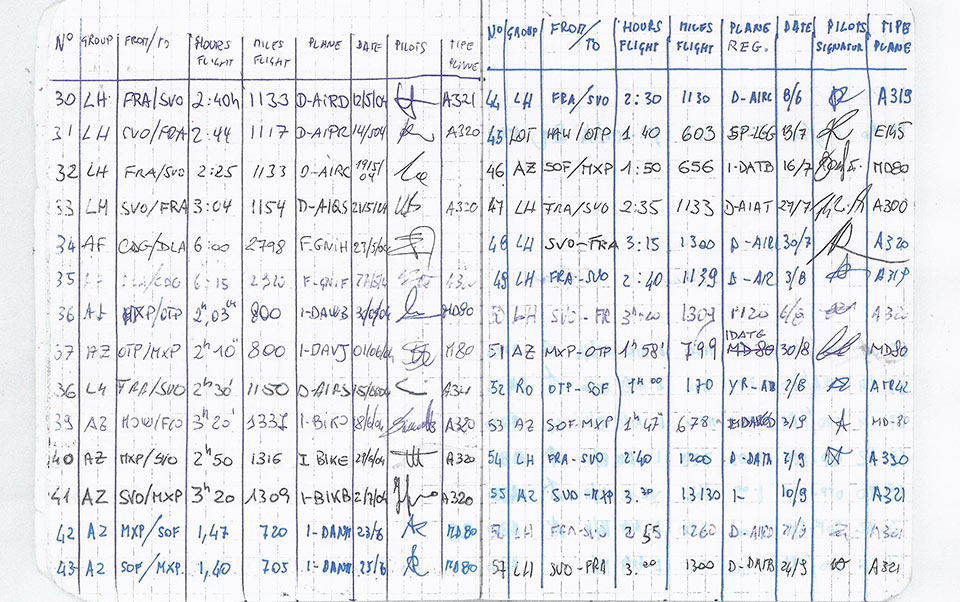 Nº GROUP FROM/TO HOURS FLIGHT MILES FLIGHT PLANE DATE PILOTS TIPE PLANE
30 LH FRA/SVO 2:40h 1133 D-AIRD 12/5/04 A321
31 LH SVO/FRA 2:44 1117 D-AIPR 14/5/04 A320
32 LH FRA/SVO 2:25 1133 D-AIRC 19/5/04
33 LH SVO/FRA 3:04 1154 D-AIQS 21/5/04 A320
34 AF CDG/DLA 6:00 2798 F.GNIH
35 6:15
36 AZ MXP/OTP 2,03 800 MD80
37 AZ OTP/MXP 2h10' 800 I-DAVJ 01/06/04 M80
36 LH FRA/SVO 2h30' 1150 D-AIRS
39 AZ 3h20' I-BIKO A320
40 AZ MXP/SVO 2h50 1316 I BIKE A320
41 AZ SVO/MXP 3h20 1309 I-BIKB A320
42 AZ MXP/SOF 1,47 720 I-DANM 23/6 MD80
43 AZ SOF/MXP. 1,40 705 I-DANM 25/6 MD80
Nº GROUP FROM/TO HOURS FLIGHT MILES FLIGHT PLANE REG. DATE PILOTS SIGNATOR TIPE PLANE
44 LH FRA/SVO 2:30 1130 D-AIRC 8/6 A319
45 LOT OTP 1.40 603 SP-LGG 13/7 E145
46 AZ SOF/MXP 1:50 656 I-DATB 16/7 MD80
47 LH FRA/SVO 2:35 1133 D-AIAT 27/7 A300
48 LH SVO-FRA 3:15 1300 D-AIR 30/7 A320
LH FRA-SVO 2:40 1139 3/8 A319
50 LH SVO-FR A320
51 AZ MXP-OTP 1h58' 799 IDATG MD80 30/8 MD80
52 RO OTP-SOF 1h00 170 2/8 ATR42
53 AZ SOF-MXP 1h47' 678 3/9 MD-80
54 LH FRA-SVO 2:40 1200 D-DATA 2/9
55 AZ SVO-MXP 3.30 13130 I- 10/9 A321
LH 2 55 1260 A321
57 LH SVO-FRA 3.00 1300 D-DATB 24/9 A321